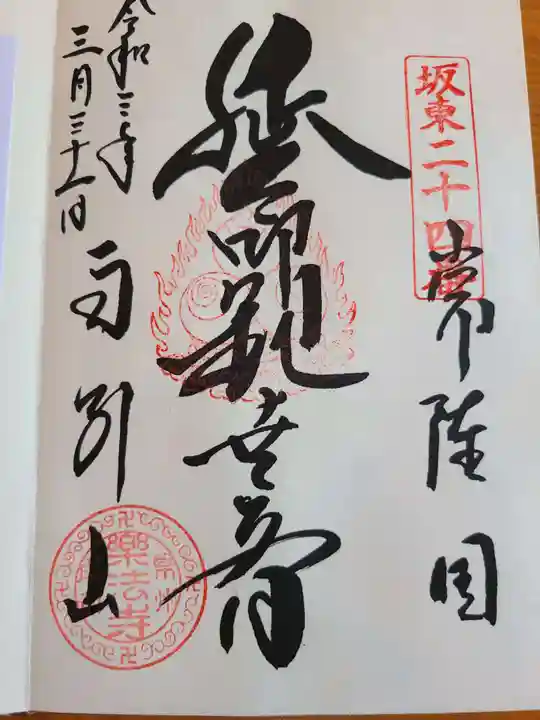 坂東二十四番
常陸国
延命観世音
雨引山
令和三年
三月三十一日
樂法寺
常州